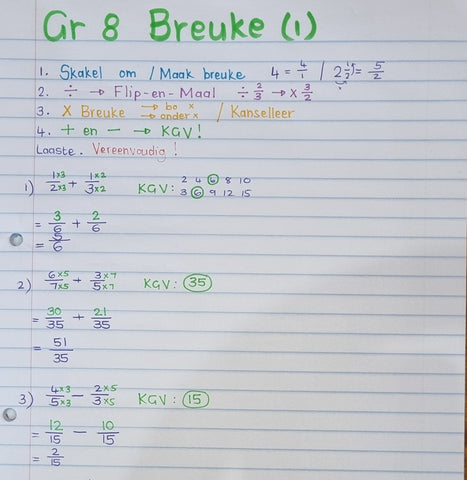 Gr 8 Breuke (1)
1. Skakel om / Maak breuke 4 = 4/1 / 2 1/2 = 5/2
2. ÷ → Flip-en-Maal ÷ 2/3 → x 3/2
3. X Breuke → bo x → onder x / Kanselleer
4. + en − → KGV!
Laaste. Vereenvoudig!
1) 1 x3/2 x3 + 1 x2/3 x2 KGV: 2 4 6 8 10
3 6 9 12 15
= 3/6 + 2/6
= 5/6
2) 6 x5/7 x5 + 3 x7/5 x7 KGV: 35
= 30/35 + 21/35
= 51/35
3) 4 x3/5 x3 − 2 x5/3 x5 KGV: 15
= 12/15 − 10/15
= 2/15